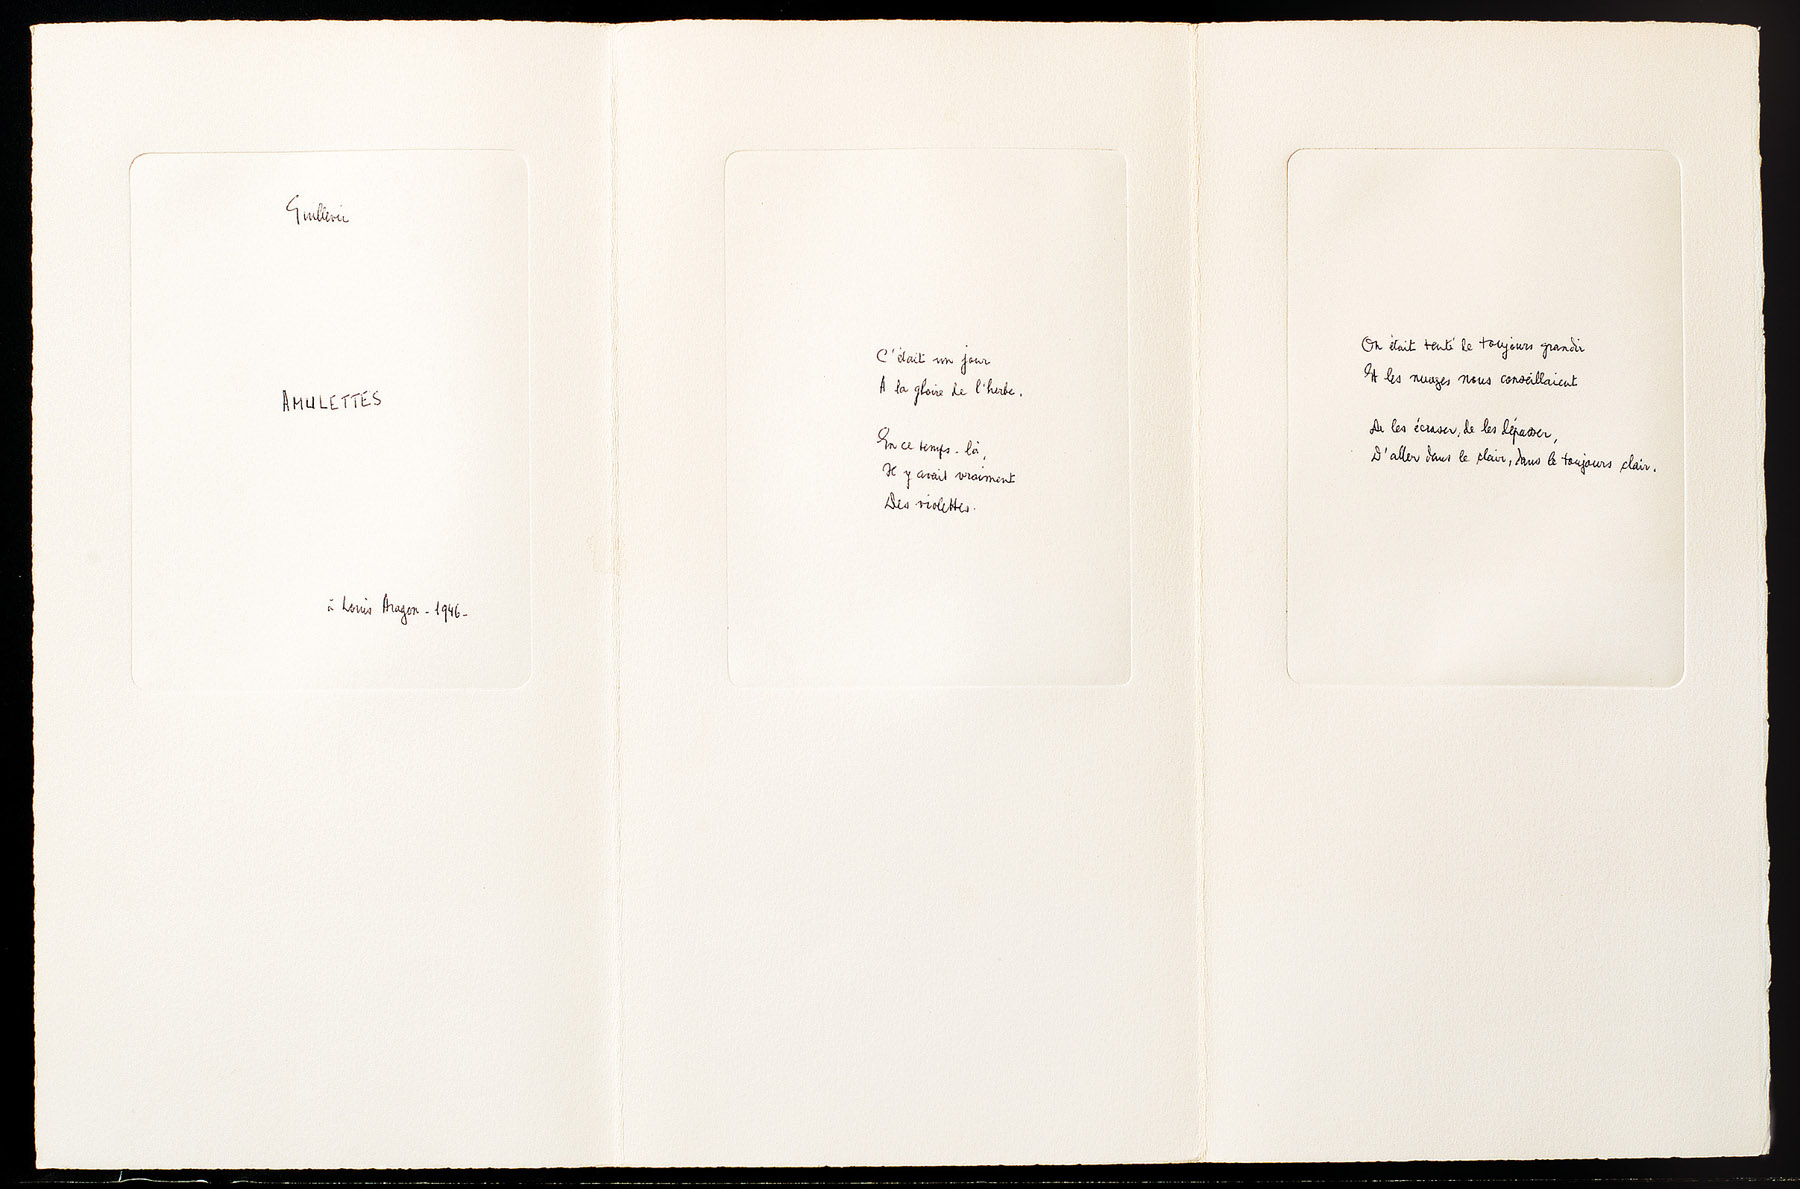 Guillevic
AMULETTES
à Louis Aragon - 1946 -
C'était un jour
A la gloire de l'herbe.
En ce temps-là,
Il y avait vraiment
Des violettes.
On était tenté de toujours grandir
Et les nuages nous conseillaient
De les écraser, de les dépasser,
D'aller dans le clair, dans le toujours clair.